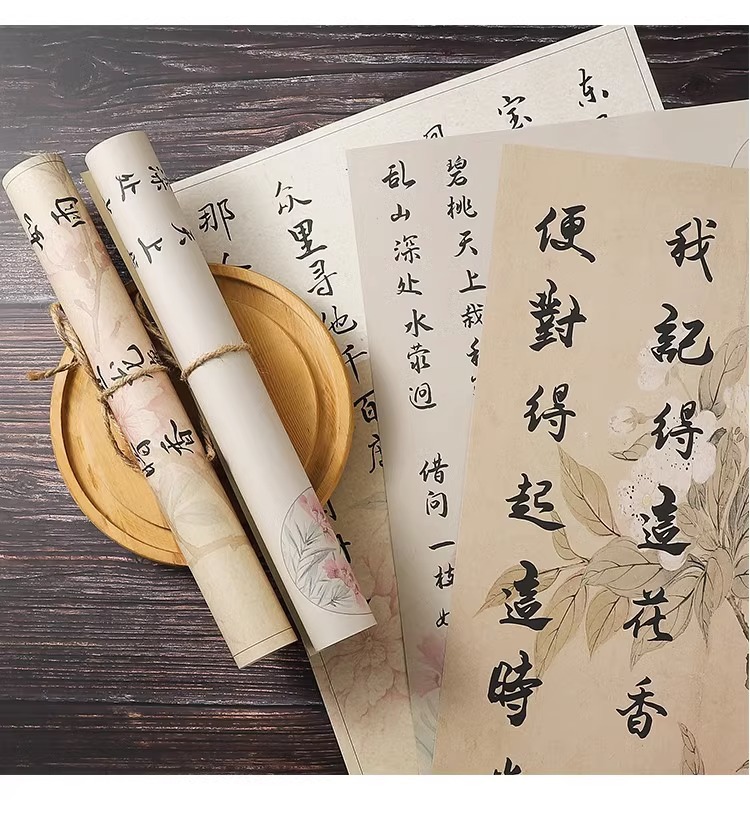 我記得這花香
便對得起這時
碧桃天上栽和
乱山深处水萦迴 借问一枝如
东
宝
众里寻他千百度
那
天上
处
香